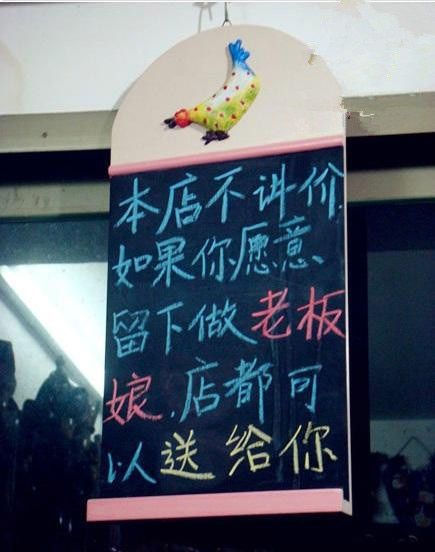 本店不讲价
如果你愿意
留下做老板
娘,店都可
以送给你